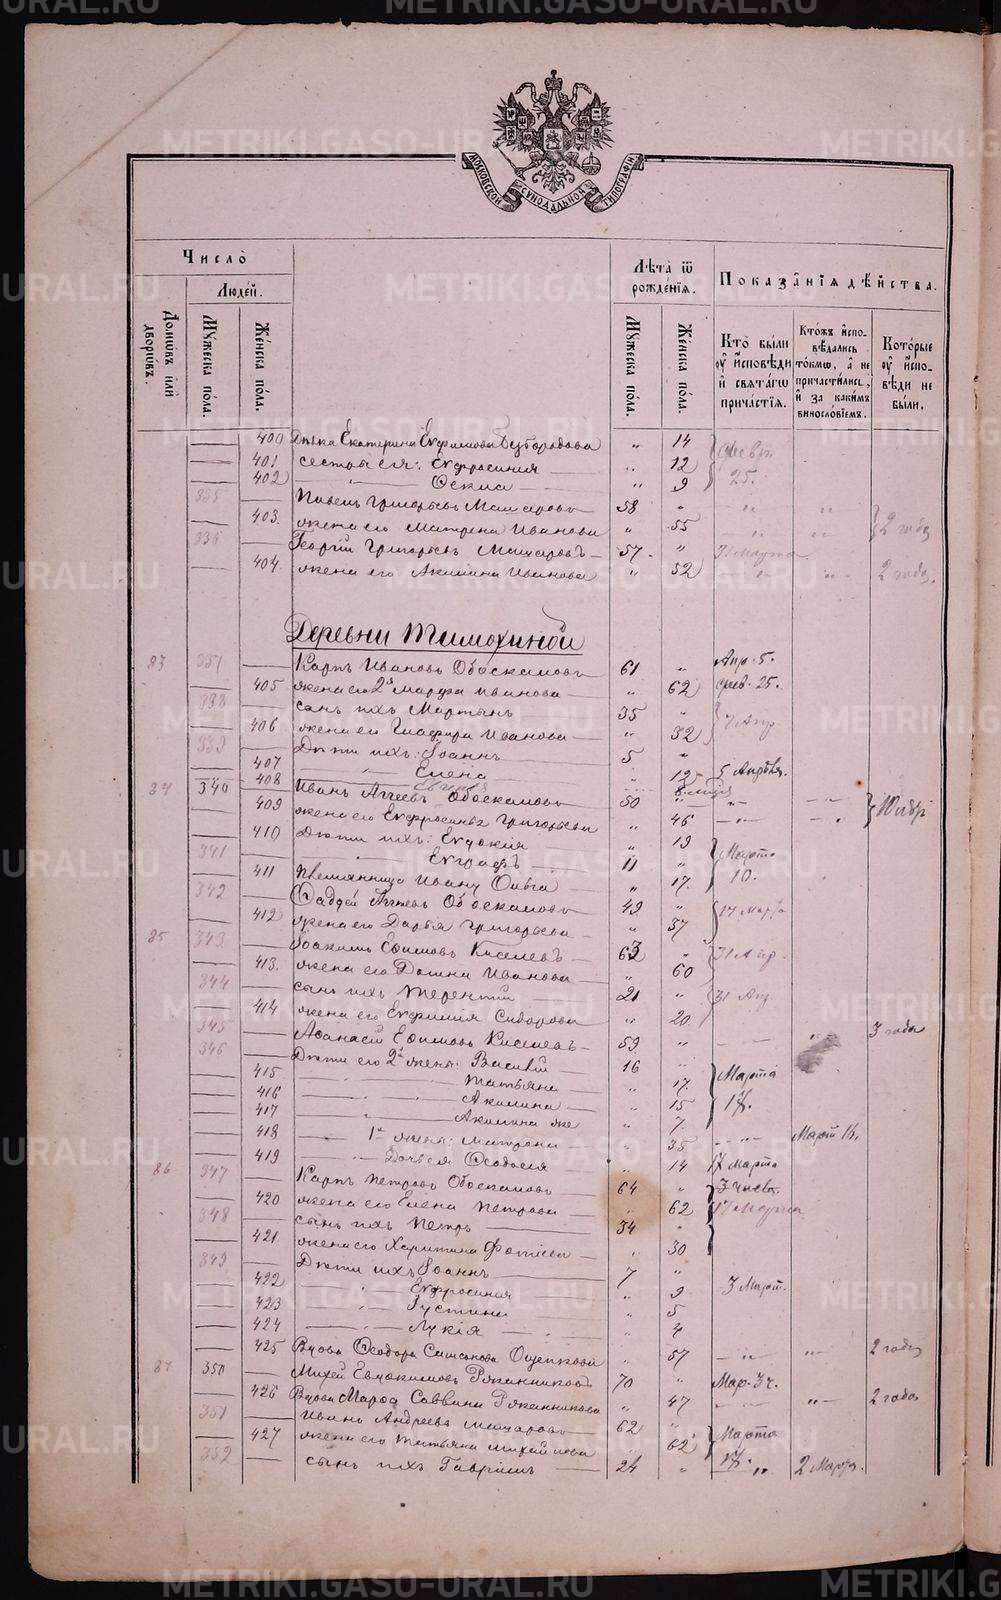 METRIKI.GASO-URAL.RU
МОСКОВСКОЙ СУНОДАЛЬНОЙ ТИПОГРАФІИ
Число̀
Людей.
Домѡвъ или дворѡвъ.
Мꙋжеска пола.
Женска пола.
Лѣта ѿ рожденїя.
Мꙋжеска пола.
Женска пола.
Показанїя дѣйства.
Кто были ꙋ исповѣди и свѧтагѡ причастїя.
Ктожъ исповѣдались токмѡ, а не причастились, и за какимъ винословїемъ.
Которые ꙋ исповѣди не были.
400 Дѣвка Екатерина Ефимова " 14 Февр.
401 сестры ея: Евфросинія " 12 25.
402 " 9
335 Павелъ Григорьевъ Машаровъ 58 "
403. жена его Матрона Иванова " 55 2 года
336 Георгій Григорьевъ Машаровъ 57 " Марта
404. жена его Акилина Иванова " 52 2 года.
Деревни Тимохиной
83 Карпъ Ивановъ Обоскаловъ 61 " Апр. 5.
405 жена его 2я Марфа Иванова " 62 фев. 25.
338 сынъ ихъ Мартынъ 35 "
406 жена его Глафира Иванова " 32 Апр
339 Дѣти ихъ: Іоаннъ 5 "
407 Елена 12 5 Апрѣля.
408
84 340 Иванъ Аггеевъ Обоскаловъ 50 "
409 жена его Евфросинья Григорьева " 46
410 Дѣти ихъ: Евдокія " 19 Марта
341 Евграфъ 11 " 10.
411 племянница Ивану Ольга " 17.
342 Фаддей Аггеевъ Обоскаловъ 49 " 17 Марта
412 жена его Дарья Григорьева " 37
85 343 Іоакимъ Ефимовъ Киселевъ 63 "
413. жена его Домна Иванова " 60
344 сынъ ихъ Терентій 21 " 31 Апр
414 жена его Евфимія " 20
345 Аѳанасій Ефимовъ Киселевъ 59 " 3 года
346 Дѣти его 2й жены: Василій 16 "
415 Татьяна " 17. Марта
416 Акилина " 15 17.
417 Акилина же " 7.
418 1я жена: Матрона 35 Март 16.
419 Дочь ея Ѳеодосія " 14 17 Марта
86 347 Карпъ Петровъ Обоскаловъ 64 "
420 жена его Елена Петрова " 62 17 Марта
348 сынъ ихъ Петръ 34 "
421. жена его Харитина Фотіева " 30
349 Дѣти ихъ Іоаннъ 7 "
422 Евфросинія " 9 3 Март.
423 Іустина " 5
424 Лукія " 4
425 Вдова Ѳеодора " 57 2 года
87 350 Михей Евдокимовъ 70 " Мар. 3 ч.
426 Вдова Марѳа Саввина " 47 2 года
351 Иванъ Андреевъ Машаровъ 62 "
427 жена его Татьяна Михайлова " 62 Марта
352 сынъ ихъ Гавріилъ 24 " 17. 2 Марта.